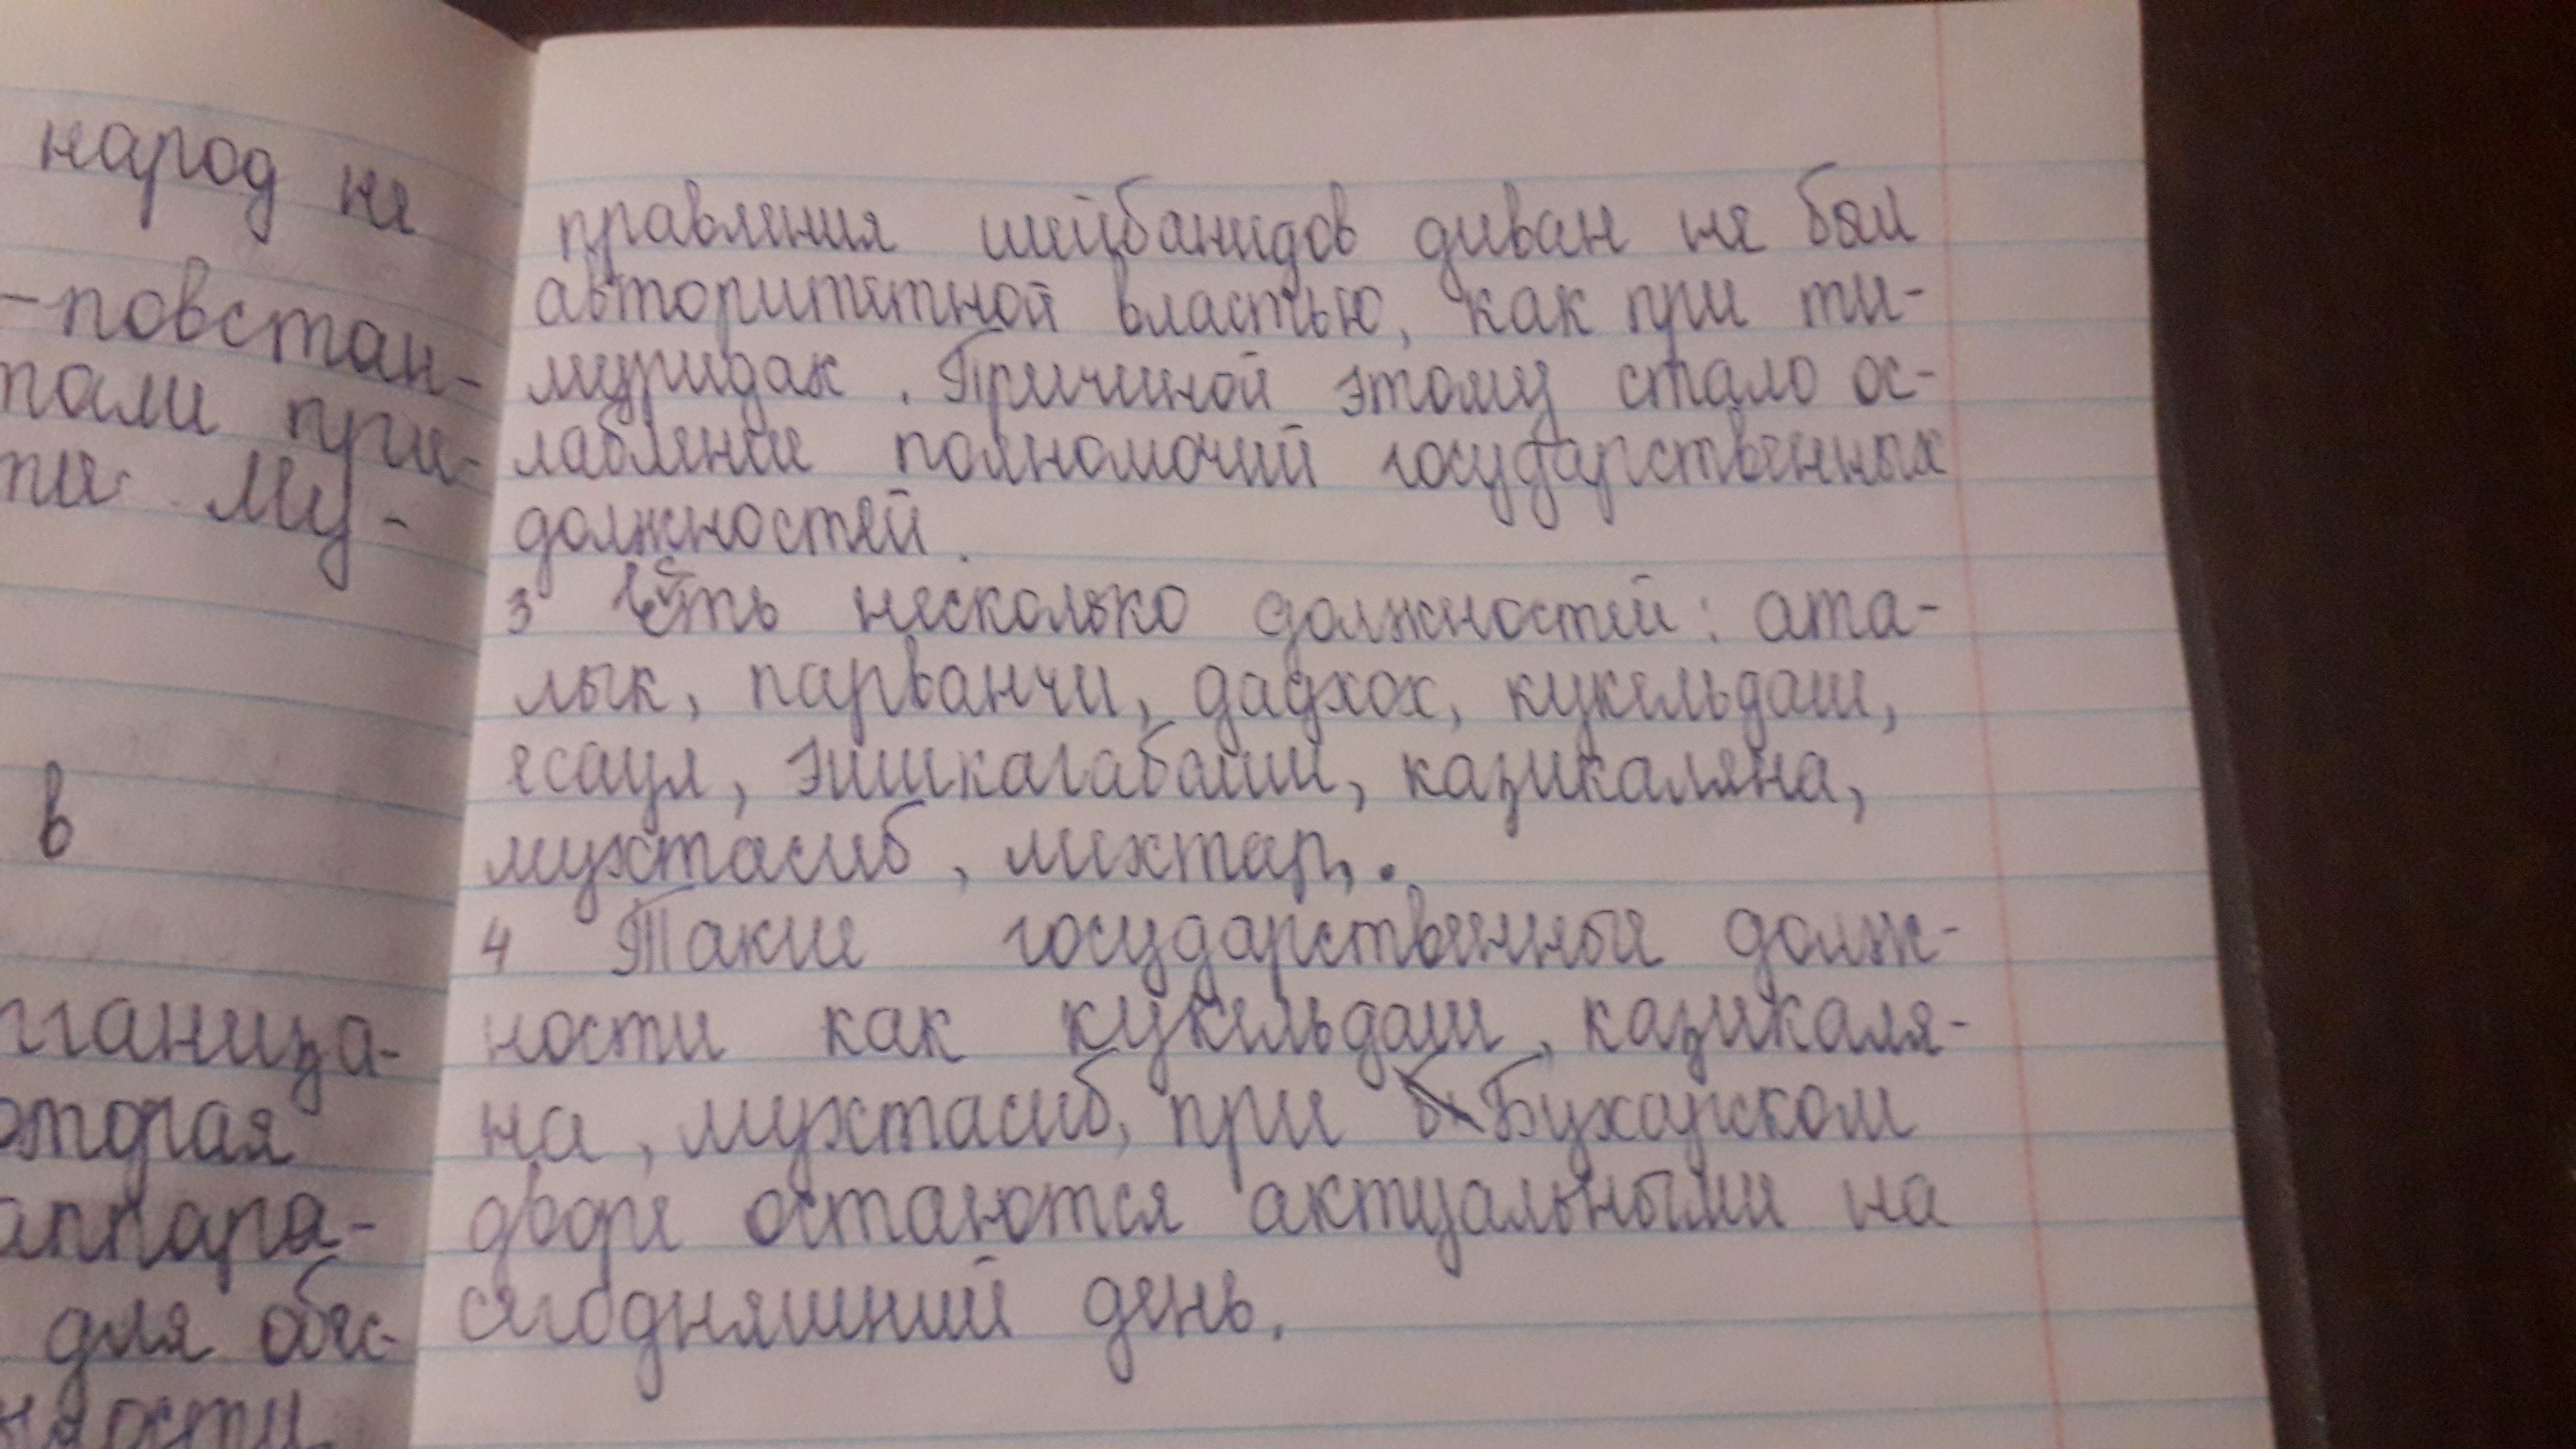 народ не
-повстан-
тали при-
ти му-
в
ганиза-
оторая
аппара-
для обес-
ности
правления шейбанидов диван не был
авторитетной властью, как при ти-
муридах. Причиной этому стало ос-
лабление полномочий государственных
должностей.
3 Есть несколько должностей: ата-
лык, парванчи, дадхох, кукельдаш,
есаул, эшикагабаши, казикаляна,
мухтасиб, михтар,.
4 Такие государственные долж-
ности как кукельдаш, казикаля-
на, мухтасиб, при Бухарском
дворе остаются актуальными на
сегодняшний день.